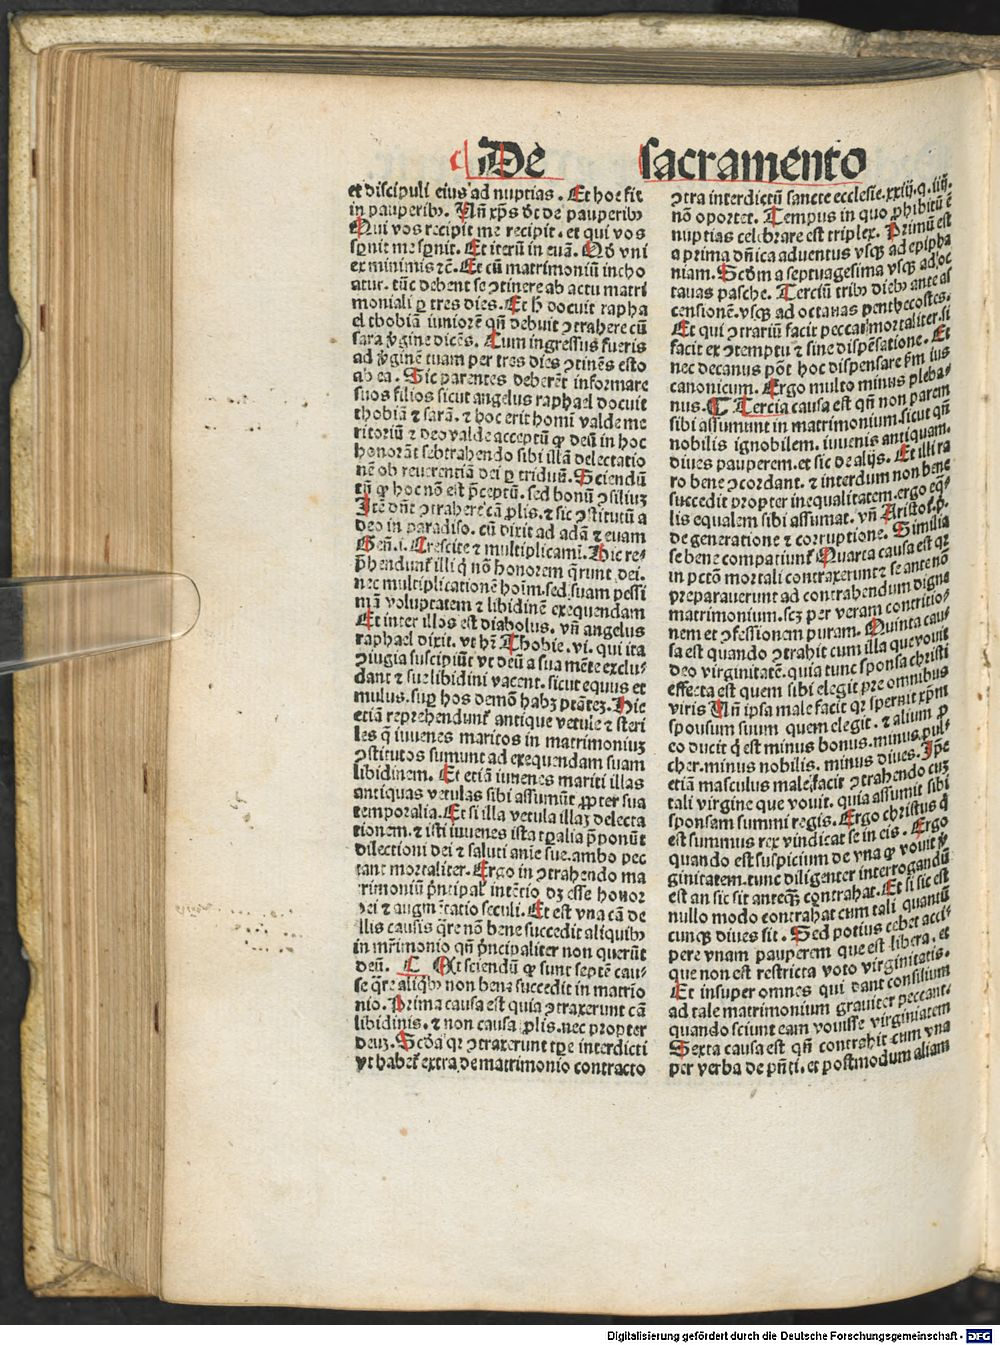 De sacramento
et discipuli eius ad nuptias. Et hoc fit
in pauperibꝰ. Uñ xp̄s dt de pauperibꝰ
Qui vos recipit me recipit. et qui vos
sp̄nit me sp̄nit. Et iterū in euā. Qd̓ vni
ex minimis ⁊c̄. Et cū matrimoniū incho
atur. tūc debent se ꝯtinere ab actu matri
moniali ꝑ tres dies. Et h̓ docuit rapha
el thobiā iuniorē qn̄ debuit ꝯtrahere cū
sara ꝟgine dicēs. Cum ingressus fueris
ad ꝟginē tuam per tres dies ꝯtinēs esto
ab ea. Sic parentes deberēt informare
suos filios sicut angelus raphael docuit
thobiā ⁊ sarā. ⁊ hoc erit homi valde me
ritoriū ⁊ deo valde acceptū ꝙ deū in hoc
honorāt ⁊ subtrahendo sibi illā delectatio
nē ob reuerentiā dei ꝑ triduū. Sciendū
tn̄ ꝙ hoc nō est p̄ceptū. sed bonū ꝯsiliuꝫ
Itē dn̄t ꝯtrahere cā ꝓlis. ⁊ sic ꝯstitutū a
deo in paradiso. cū dixit ad adā ⁊ euam
Gen̄. i. Crescite ⁊ multiplicami. Hic re-
p̄hendunt̃ illi q̄ nō honorem q̄runt dei.
nec multiplicationē hoīm. sed suam pessi
mā voluptatem ⁊ libidinē exequendam
Et inter illos est diabolus. vn̄ angelus
raphael dixit. vt hr̄ Thobie. vi. qui ita
ꝯiugia suscipiūt vt deū a sua mēte exclu-
dant ⁊ sue libidini vacent. sicut equus et
mulus. suꝑ hos demō habꝫ ptāteꝫ. Hic
etiā reprehendunt̃ antique vetule ⁊ steri
les q̄ iuuenes maritos in matrimoniuꝫ
ꝯstitutos sumunt ad exequendam suam
libidinem. Et etiā iuuenes mariti illas
antiquas vetulas sibi assumūt ꝓpter sua
temporalia. Et si illa vetula illaꝫ delecta
tionem. ⁊ isti iuuenes ista tꝑalia p̄ponūt
dilectioni dei ⁊ saluti anie sue. ambo pec
cant mortaliter. Ergo in ꝯtrahendo ma
trimoniū p̄ncipal̓ intētio dꝫ esse honor
dei ⁊ augmētatio seculi. Et est vna cā de
illis causis q̄re nō bene succedit aliquibꝰ
in mr̄imonio qn̄ p̄ncipaliter non querūt
deū. ¶ Et sciendū ꝙ sunt septē cau-
se q̄re aliqbꝰ non bene succedit in matrio
nio. Prima causa est quia ꝯtraxerunt cā
libidinis. ⁊ non causa ꝓlis. nec propter
deuꝫ. Scd̓a qꝛ ꝯtraxerunt tꝑe interdicti
vt habet̃ extra de matrimonio contracto
ꝯtra interdictū sancte ecclesie. xxiij. q. iiij.
nō oportet. Tempus in quo ꝓhibitū ē
nuptias celebrare est triplex. Primū est
a prima dn̄ica aduentus vsqꝫ ad epipha
niam. Scd̓m a septuagesima vsqꝫ ad oc
tauas pasche. Terciū tribꝰ diebꝰ ante as
censionē. vsqꝫ ad octauas penthecostes.
Et qui ꝯtrariū facit peccat mortaliter. si
facit ex ꝯtemptu ⁊ sine dispēsatione. Et
nec decanus pōt hoc dispensare ẜm ius
canonicum. Ergo multo minus pleba-
nus. ¶ Tercia causa est qn̄ non parem
sibi assumunt in matrimonium. sicut qn̄
nobilis ignobilem. iuuenis antiquam.
diues pauperem. et sic de alijs. Et illi ra
ro bene ꝯcordant. ⁊ interdum non bene
succedit propter inequalitatem. ergo eq̄-
lis equalem sibi assumat. vn̄ Aristot. p̄.
de generatione ⁊ corruptione. Similia
se bene compatiunt̃ Quarta causa est qꝛ
in pctō mortali contraxerunt ⁊ se ante nō
preparauerunt ad contrahendum digne
matrimonium. scꝫ per veram contritio-
nem et ꝯfessionem puram. Quinta cau-
sa est quando ꝯtrahit cum illa que vouit
deo virginitatē. quia tunc sponsa christi
effecta est quem sibi elegit pre omnibus
viris Uñ ipsa male facit qꝛ spernit xp̄m
sponsum suum quem elegit. ⁊ alium ꝓ
eo ducit q̓ est minus bonus. minus pul-
cher. minus nobilis. minus diues. Ip̄e
etiā masculus male facit ꝯtrahendo cuꝫ
tali virgine que vouit. quia assumit sibi
sponsam summi regis. Ergo christus q̓
est summus rex vindicat se in eis. Ergo
quando est suspicium de vna ꝙ vouit ꝟ
ginitatem. tunc diligenter interrogandū
est an sic sit anteqꝫ contrahat. Et si sic est
nullo modo contrahat cum tali quantū
cunqꝫ diues sit. Sed potius debet acci
pere vnam pauperem que est libera. et
que non est restricta voto virginitatis.
Et insuper omnes qui dant consilium
ad tale matrimonium grauiter peccant.
quando sciunt eam vouisse virginitatem
Sexta causa est qn̄ contrahit cum vna
per verba de pn̄ti. et postmodum aliam
Digitalisierung gefördert durch die Deutsche Forschungsgemeinschaft - DFG